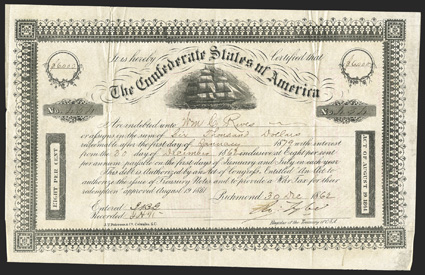 It is hereby Certified that
The Confederate States of America
$6000
$6000
No.
No.
Are indebted unto Wm C. Rives
or assigns in the sum of Six Thousand Dollars
redeemable after the first day of January 1879 with interest
from the 30 day of December 1862 inclusive at Eight per cent
per annum payable on the first days of January and July in each year
This debt is authorized by an Act of Congress, Entitled "An Act to
authorize the Issue of Treasury Notes and to provide a War Tax for their
redemption" approved August 19 1861
EIGHT PER CENT
ACT OF AUGUST 19 1861
Richmond 30 Dec 1862
Entered
Recorded
Register of the Treasury C.S.A.